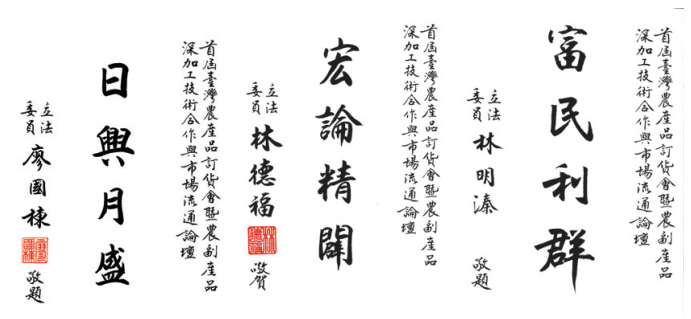 首屆臺灣農產品訂貨會暨農副產品
深加工技術合作與市場流通論壇
富民利群
立法
委員 林明溱 敬題
首屆臺灣農產品訂貨會暨農副產品
深加工技術合作與市場流通論壇
宏論精闢
立法
委員 林德福 敬賀
首屆臺灣農產品訂貨會暨農副產品
深加工技術合作與市場流通論壇
日興月盛
立法
委員 廖國棟 敬題